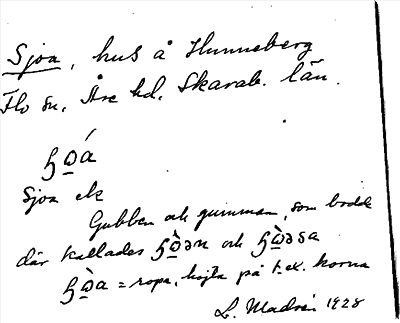 Sjoa, hus å Hunneberg
Flo sn, Åse hd. Skarab. län.
ɧo̲á
Sjoa ek
Gubben ock gumman, som bodde
där kallades ɧò̲ən ock ɧò̲əsa
ɧò̲a = ropa, hojta på t.ex. korna
1928